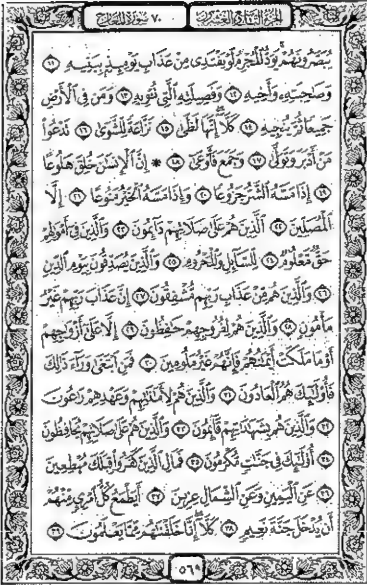 الجزء التاسع والعشرون ٧٠ سورة المعارج
يُبَصَّرُونَهُمْ يَوَدُّ ٱلْمُجْرِمُ لَوْ يَفْتَدِى مِنْ عَذَابِ يَوْمِئِذٍۭ بِبَنِيهِ ١١
وَصَٰحِبَتِهِۦ وَأَخِيهِ ١٢ وَفَصِيلَتِهِ ٱلَّتِى تُـْٔوِيهِ ١٣ وَمَن فِى ٱلْأَرْضِ
جَمِيعًا ثُمَّ يُنجِيهِ ١٤ كَلَّآ إِنَّهَا لَظَىٰ ١٥ نَزَّاعَةً لِّلشَّوَىٰ ١٦ تَدْعُوا۟
مَنْ أَدْبَرَ وَتَوَلَّىٰ ١٧ وَجَمَعَ فَأَوْعَىٰٓ ١٨ * إِنَّ ٱلْإِنسَٰنَ خُلِقَ هَلُوعًا
١٩ إِذَا مَسَّهُ ٱلشَّرُّ جَزُوعًا ٢٠ وَإِذَا مَسَّهُ ٱلْخَيْرُ مَنُوعًا ٢١ إِلَّا
ٱلْمُصَلِّينَ ٢٢ ٱلَّذِينَ هُمْ عَلَىٰ صَلَاتِهِمْ دَآئِمُونَ ٢٣ وَٱلَّذِينَ فِىٓ أَمْوَٰلِهِمْ
حَقٌّ مَّعْلُومٌ ٢٤ لِّلسَّآئِلِ وَٱلْمَحْرُومِ ٢٥ وَٱلَّذِينَ يُصَدِّقُونَ بِيَوْمِ ٱلدِّينِ
٢٦ وَٱلَّذِينَ هُم مِّنْ عَذَابِ رَبِّهِم مُّشْفِقُونَ ٢٧ إِنَّ عَذَابَ رَبِّهِمْ غَيْرُ
مَأْمُونٍ ٢٨ وَٱلَّذِينَ هُمْ لِفُرُوجِهِمْ حَٰفِظُونَ ٢٩ إِلَّا عَلَىٰٓ أَزْوَٰجِهِمْ
أَوْ مَا مَلَكَتْ أَيْمَٰنُهُمْ فَإِنَّهُمْ غَيْرُ مَلُومِينَ ٣٠ فَمَنِ ٱبْتَغَىٰ وَرَآءَ ذَٰلِكَ
فَأُو۟لَٰٓئِكَ هُمُ ٱلْعَادُونَ ٣١ وَٱلَّذِينَ هُمْ لِأَمَٰنَٰتِهِمْ وَعَهْدِهِمْ رَٰعُونَ
٣٢ وَٱلَّذِينَ هُم بِشَهَٰدَٰتِهِمْ قَآئِمُونَ ٣٣ وَٱلَّذِينَ هُمْ عَلَىٰ صَلَاتِهِمْ يُحَافِظُونَ
٣٤ أُو۟لَٰٓئِكَ فِى جَنَّٰتٍ مُّكْرَمُونَ ٣٥ فَمَالِ ٱلَّذِينَ كَفَرُوا۟ قِبَلَكَ مُهْطِعِينَ
٣٦ عَنِ ٱلْيَمِينِ وَعَنِ ٱلشِّمَالِ عِزِينَ ٣٧ أَيَطْمَعُ كُلُّ ٱمْرِئٍ مِّنْهُمْ
أَن يُدْخَلَ جَنَّةَ نَعِيمٍ ٣٨ كَلَّآ إِنَّا خَلَقْنَٰهُم مِّمَّا يَعْلَمُونَ ٣٩
٥٦٩